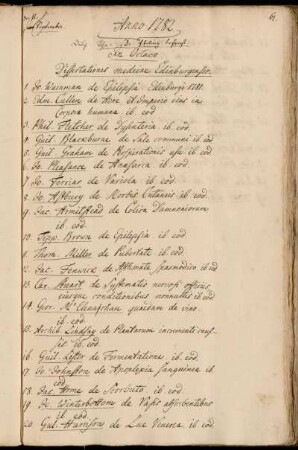 Anno 1782
In Octavo
Dissertationes medicæ Edinburgenses.
1. Jo. Wainman de Epilepsia Edinburgi 1781.
2. Edm. Cullen de Aere et Imperio ejus in
Corpora humana ib. eod.
3. Phil. Fletcher de Dysenteria ib. eod.
4. Guil. Blackburne de Sale communi ib. eod.
5. Guil. Graham de Respirationis usu ib. eod
6. Jo. Pleasance de Anasarca ib. eod.
7. Jo. Ferriar de Variola ib. eod.
8. Jo. Asbury de Morbis Cutaneis ib. eod
9. Jac. Armitstead de Colica Damnoniorum
ib. eod.
10. Brown de Epilepsia ib. eod.
11. Thom. Miller de Pubertate ib. eod.
12. Jac. Fenwick de Asthmate spasmodico ib. eod
13. Car. Stuart de Systematis nervosi officiis,
ejusque conditionibus nonnullis ib. eod
14. Geor. quædam de vino
ib. eod.
15. Archib. Lindsay de Plantarum incrementi
ib. eod.
16. Guil. Lister de Fermentatione ib. eod.
17. Jo. Johnston de Apoplexia sanguinea ib.
eod.
18. Jac. Home de Scorbuto ib. eod.
19. Jo. Winterbottom de Vasis absorbentibus
ib. eod.
20. Gul. Harrison de Lue Venerea ib. eod.